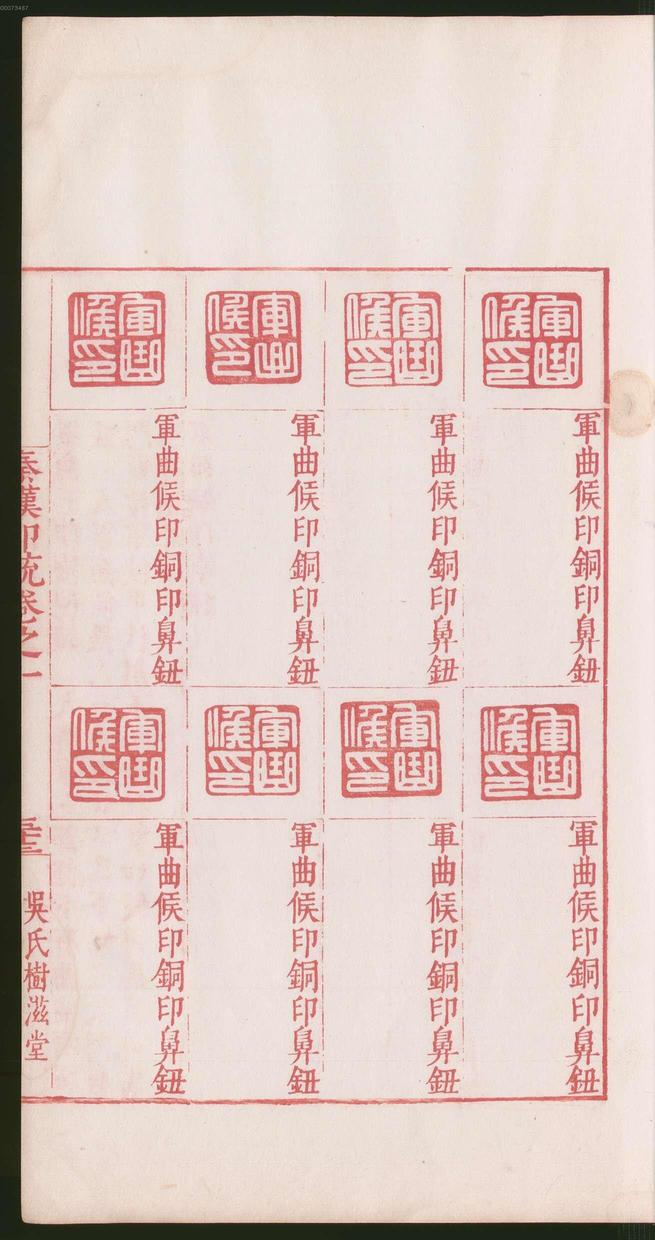 00073487
軍曲候印
軍曲候印銅印鼻鈕
軍曲候印
軍曲候印銅印鼻鈕
軍曲候印
軍曲候印銅印鼻鈕
軍曲候印
軍曲候印銅印鼻鈕
軍曲候印
軍曲候印銅印鼻鈕
軍曲候印
軍曲候印銅印鼻鈕
軍曲候印
軍曲候印銅印鼻鈕
軍曲候印
軍曲候印銅印鼻鈕
秦漢印統卷之一
吳氏樹滋堂